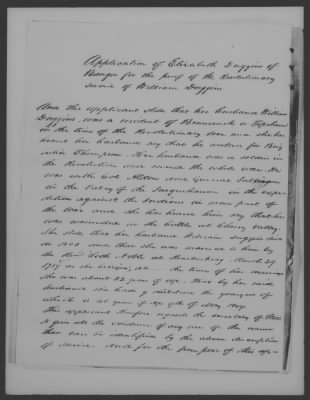 Application of Elizabeth Duggins of
Bangor for the proof of the Revolutionary
service of William Duggins
And this applicant states that her husband William
Duggins was a resident of Brunswick or Topsham
in the time of the Revolutionary war and she has
heard her husband say that he under Brig
Thompson. Her husband was a soldier in
the Revolution and served the whole war. He
was with Col Alden and General Sullivan
in the Valley of the Susquehanna in the expe-
dition against the Indians in some part of
the war and she has heard him say that he
was wounded in the battle at Cherry Valley.
She states that her husband William Duggins died
in and that she was married to him by
the Rev Seth Noble at March 29
at the time of her marriage
She was about 22 years of age. That by her said
husband she had 9 children the youngest of
which is 40 years of age 9th of May
This applicant therefore requests the secretary of State
to give all the evidence of any one of the name
that can be identified by the above description
of service. And for the purpose of this ap-